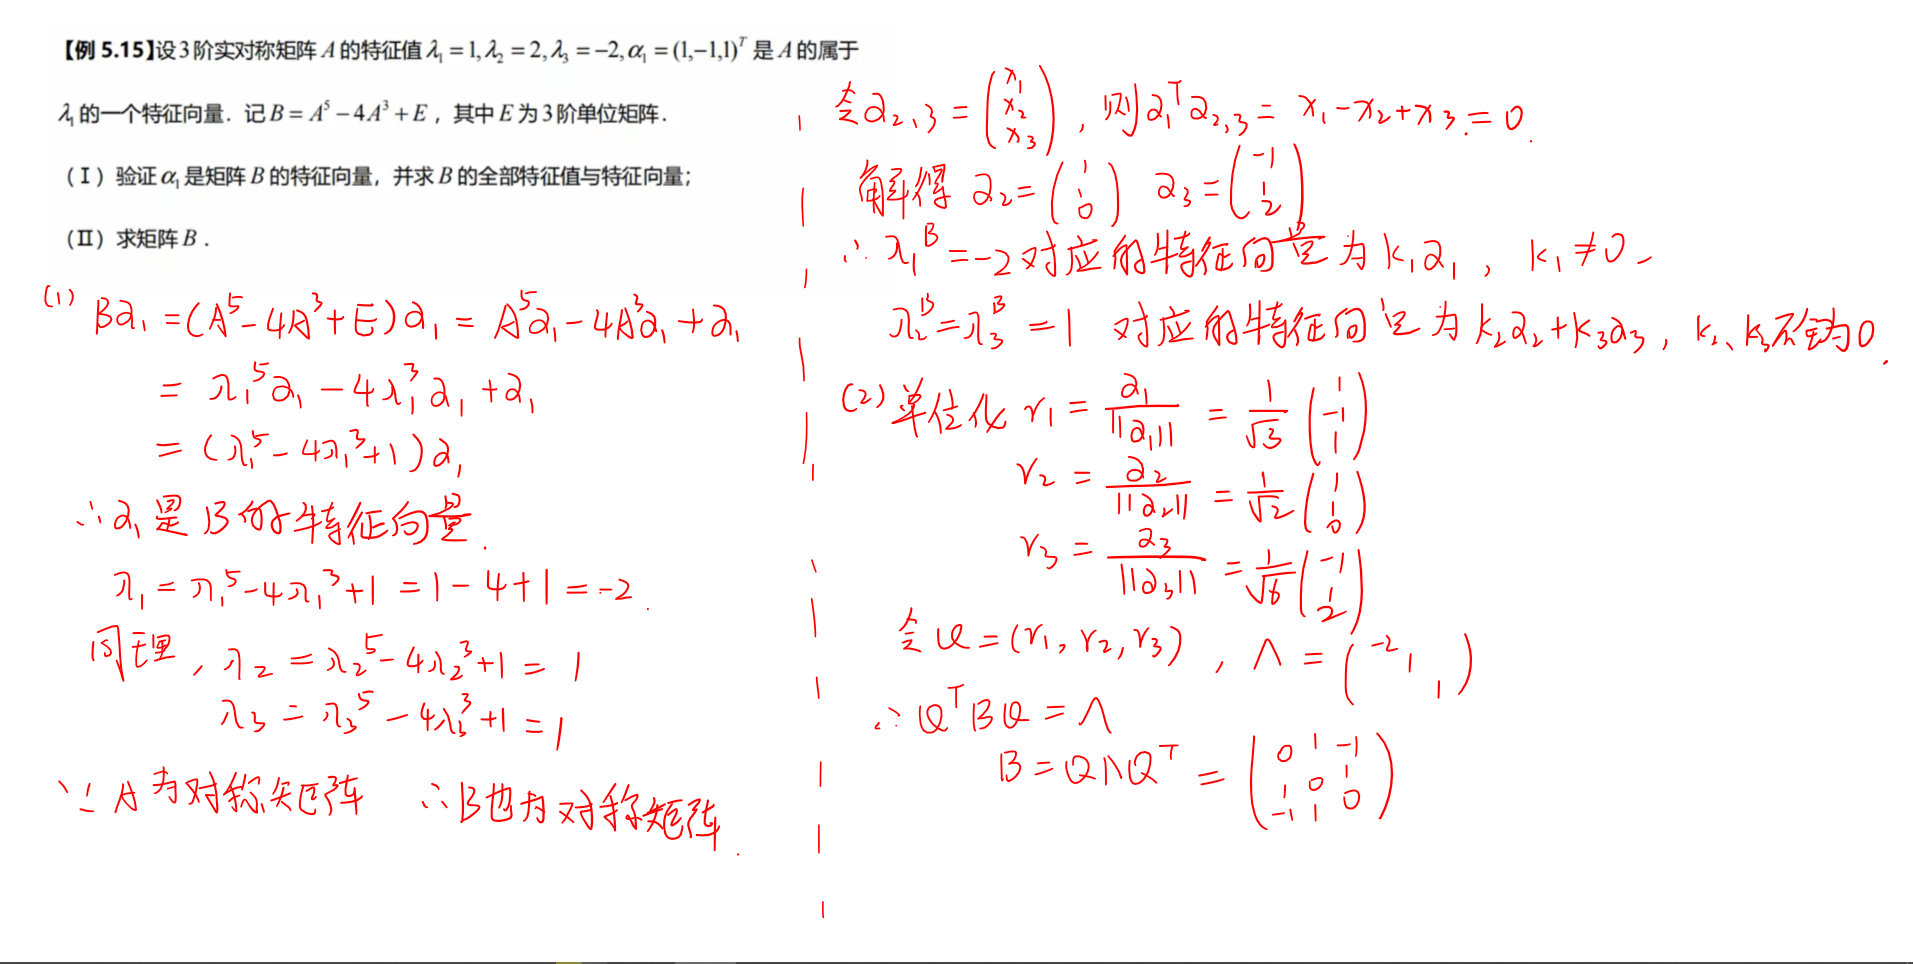 【例 5.15】设3阶实对称矩阵 A 的特征值 λ₁ = 1, λ₂ = 2, λ₃ = −2, α₁ = (1,−1,1)ᵀ 是 A 的属于
λ₁ 的一个特征向量. 记 B = A⁵ − 4A³ + E，其中 E 为3阶单位矩阵.
（Ⅰ）验证 α₁ 是矩阵 B 的特征向量，并求 B 的全部特征值与特征向量；
（Ⅱ）求矩阵 B .
(1) Bα₁ = (A⁵ − 4A³ + E)α₁ = A⁵α₁ − 4A³α₁ + α₁
= λ₁⁵α₁ − 4λ₁³α₁ + α₁
= (λ₁⁵ − 4λ₁³ + 1)α₁
∴ α₁ 是 B 的特征向量.
λ₁ = λ₁⁵ − 4λ₁³ + 1 = 1 − 4 + 1 = −2.
同理, λ₂ = λ₂⁵ − 4λ₂³ + 1 = 1
λ₃ = λ₃⁵ − 4λ₃³ + 1 = 1
∵ A 为对称矩阵 ∴ B 也为对称矩阵.
令 α₂,₃ = (x₁ x₂ x₃), 则 α₁ᵀα₂,₃ = x₁ − x₂ + x₃ = 0.
解得 α₂ = (1 1 0) α₃ = (−1 1 2)
∴ λ₁ᴮ = −2 对应的特征向量为 k₁α₁, k₁ ≠ 0.
λ₂ᴮ = λ₃ᴮ = 1 对应的特征向量为 k₂α₂ + k₃α₃, k₂、k₃不全为0.
(2) 单位化 r₁ = α₁/||α₁|| = 1/√3 (1 −1 1)
r₂ = α₂/||α₂|| = 1/√2 (1 1 0)
r₃ = α₃/||α₃|| = 1/√6 (−1 1 2)
令 Q = (r₁, r₂, r₃), Λ = (−2 1 1)
∴ QᵀBQ = Λ
B = QΛQᵀ = (0 1 −1
1 0 1
−1 1 0)